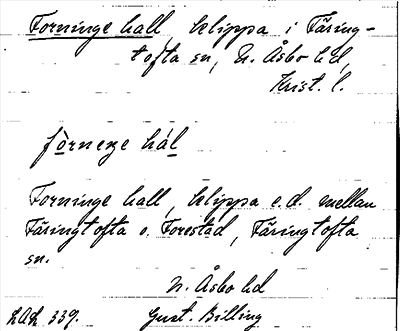 Forninge hall, klippa i Färing-
tofta sn, N. Åsbo hd,
Krist. l.
förneŋe hál
Forninge hall, klippa e.d. mellan
Färingtofta o. Forestad, Färingtofta
sn.
N. Åsbo hd
LAL 339. Gust. Billing